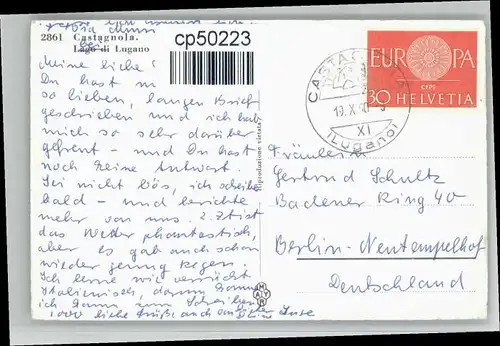 2861 Castagnola.
Lago di Lugano
cp50223
Meine liebe
Du hast m
so lieben, langen Brief
geschrieben und ich hab
mich so sehr darüber
gefreut – und Du hast
noch keine Antwort.
Sei nicht bös, ich schreibe
bald – und berichte
mehr von uns. z. Zt ist
das Wetter phantastisch,
aber es gab auch schon
wieder genug Regen.
Ich lerne wie verrückt
Italienisch, damit
ich dann im
1000 liebe Grüße auch an
Riproduzione vietata
MAYR
CASTAGNOLA
10.X.60
XI
(Lugano)
EUROPA
CEPT
30 HELVETIA
Fräulein
Gertrud Schultz
Badener Ring 40
Berlin-Neutempelhof
Deutschland